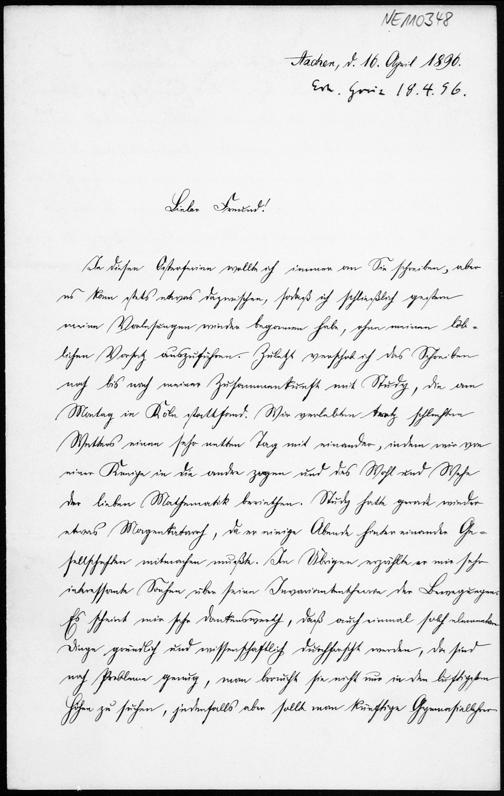 NE110348
Aachen, d. 16. April 1896.
18.4.96.
Lieber Freund!
In diesen Osterferien wollte ich immer an Sie schreiben, aber
es kam stets etwas dazwischen, sodaß ich schließlich gestern
meine Vorlesungen wieder begonnen habe, ohne meinen löb-
lichen Vorsatz auszuführen. Zuletzt verschob ich das Schreiben
noch bis nach meiner Zusammenkunft mit Study, die am
Montag in Köln stattfand. Wir verlebten trotz schlechten
Wetters einen sehr netten Tag mit einander, indem wir von
einer Kneipe in die andre zogen und das Wohl und Wehe
der lieben Mathematik beriethen. Study hatte gerade wieder
etwas Magenkatarrh, da er einige Abende hinter einander Ge-
sellschaften mitmachen mußte. Im Übrigen erzählte er mir sehr
interessante Sachen über seine Invariantentheorie der Bewegungen.
Es scheint mir sehr dankenswerth, daß auch einmal solch elementare
Dinge gründlich und wissenschaftlich durchforscht werden, da sind
noch Probleme genug, man braucht sie nicht nur in den luftigsten
Höhen zu suchen, jedenfalls aber sollte man künftige Gymnasiallehrer